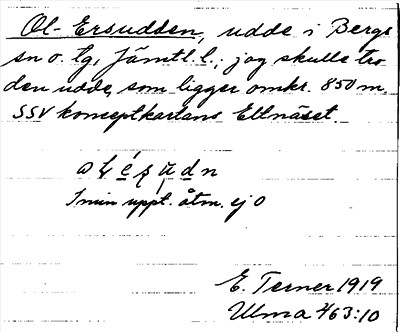 Ol-Ersudden, udde i Bergs
sn o. tg, Jämtl. l.; jag skulle tro
den udde, som ligger omkr. 850 m.
SSV konceptkartans Eltnäset.
I min uppt. åtm. ej o
E. Terner 1919
Ulma 763:10